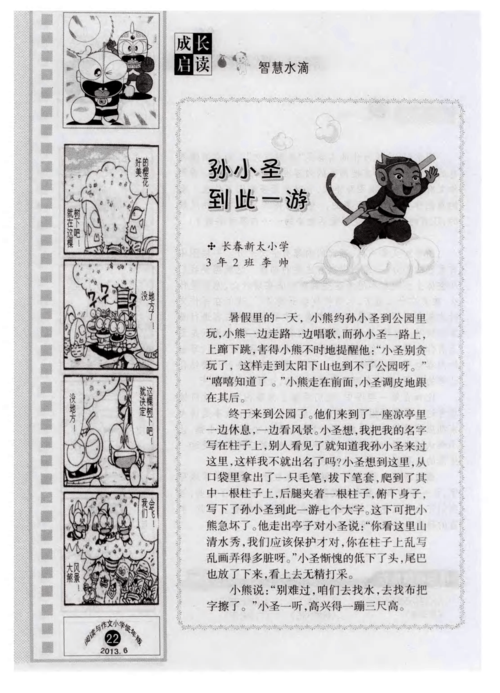 成长
启读
智慧水滴
孙小圣
到此一游
长春新太小学
3年2班 李帅
暑假里的一天，小熊约孙小圣到公园里
玩，小熊一边走路一边唱歌，而孙小圣一路上，
上蹿下跳，害得小熊不时地提醒他：“小圣别贪
玩了，这样走到太阳下山也到不了公园呀。”
“嘻嘻知道了。”小熊走在前面，小圣调皮地跟
在其后。
终于来到公园了。他们来到了一座凉亭里
一边休息，一边看风景。小圣想，我把我的名字
写在柱子上，别人看见了就知道我孙小圣来过
这里，这样我不就出名了吗？小圣想到这里，从
口袋里拿出了一只毛笔，拔下笔套，爬到了其
中一根柱子上，后腿夹着一根柱子，俯下身子，
写下了孙小圣到此一游七个大字。这下可把小
熊急坏了。他走出亭子对小圣说：“你看这里山
清水秀，我们应该保护才对，你在柱子上乱写
乱画弄得多脏呀。”小圣惭愧的低下了头，尾巴
也放了下来，看上去无精打采。
小熊说：“别难过，咱们去找水，去找布把
字擦了。”小圣一听，高兴得一蹦三尺高。
的樱花
好美
树下吧！
就在这棵
地方了！
没
这棵树下吧！
就决定
没地方！
会飞！
我们
大风景！
22
2013.6